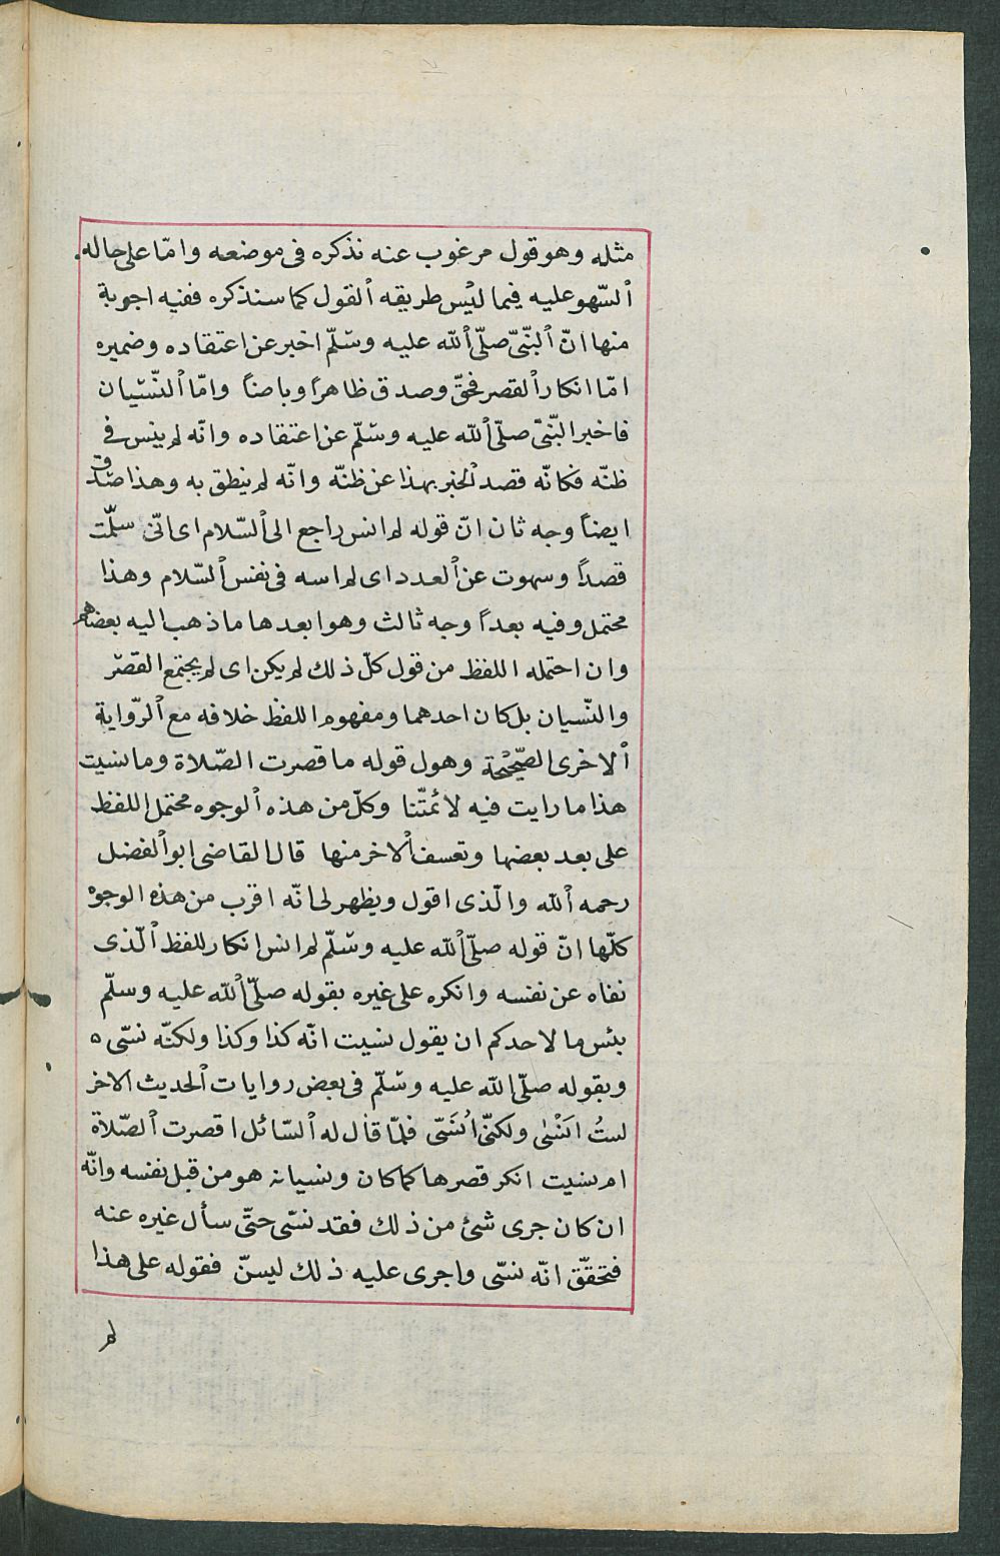 مثله وهو قول مرغوب عنه نذكره فى موضعه وامّا على حاله
ٱلسّهو عليه فيما ليْس طريقه ٱلقول كما سنذكره ففيه اجوبة
منها انّ ٱلنّبىّ صلّى ٱلله عليه وسّلم اخبر عن اعتقاده وضميره
امّا انكار ٱلقصر فحقّ وصدق ظاهراً وباصناً وامّا ٱلنّسْيان
فاخبر النّبىّ صلّى ٱلله عليه وسّلم عن اعتقاده وانّه لم ينس فى
ظنّه فكانّه قصد ٱلخبر بهذا عن ظنّه وانّه لم ينطق به وهذا صْدق
ايضاً وجه ثان انّ قوله لم انس راجع الى ٱلسّلام اى انّى سلّمت
قصداً وسهوت عن ٱلعدد اى لم اسه فى نفس ٱلسّلام وهذا
محتمل وفيه بعداً وجه ثالث وهو ابعدها ما ذهب اليه بعضهم
وان احتمله اللفظ من قول كلّ ذلك لم يكن اى لم يجتمع القصْر
والنّسيان بل كان احدهما ومفهوم اللفظ خلافه مع ٱلرّواية
ٱلاخرى الصّحيْحة وهول قوله ما قصرت الصّلاة وما نسيت
هذا ما رايت فيه لائمّتنا وكلّ من هذه ٱلوجوه محتمل اللفظ
على بعد بعضها وتعسف ٱلاخر منها قال القاضى ابو ٱلفضل
رحمه ٱلله والّذى اقول ويظهر لى انّه اقرب من هذه الوجوه
كلّها انّ قوله صلّى ٱلله عليه وسّلم لم انس انكار للفظ ٱلّذى
نفاه عن نفسه وانكره على غيره بقوله صلّى ٱلله عليه وسلّم
بئس ما لاحدكم ان يقول نسيت انّه كذا وكذا ولكنّه نسّى ه
وبقوله صلّى الله عليه وسّلم فى بعض روايات ٱلحديث الاخر
لستُ انَسْٰى ولكنّى اُنَسّى فلمّا قال له ٱلسّائل اقصرت ٱلصّلاة
ام نسيت انكر قصرها كما كان ونسيانه هو من قبل نفسه وانّه
ان كان جرى شئ من ذلك فقد نسّى حتّى سأل غيره عنه
فتحقّق انّه نسّى واجرى عليه ذلك ليسنّ فقوله على هذا
لم